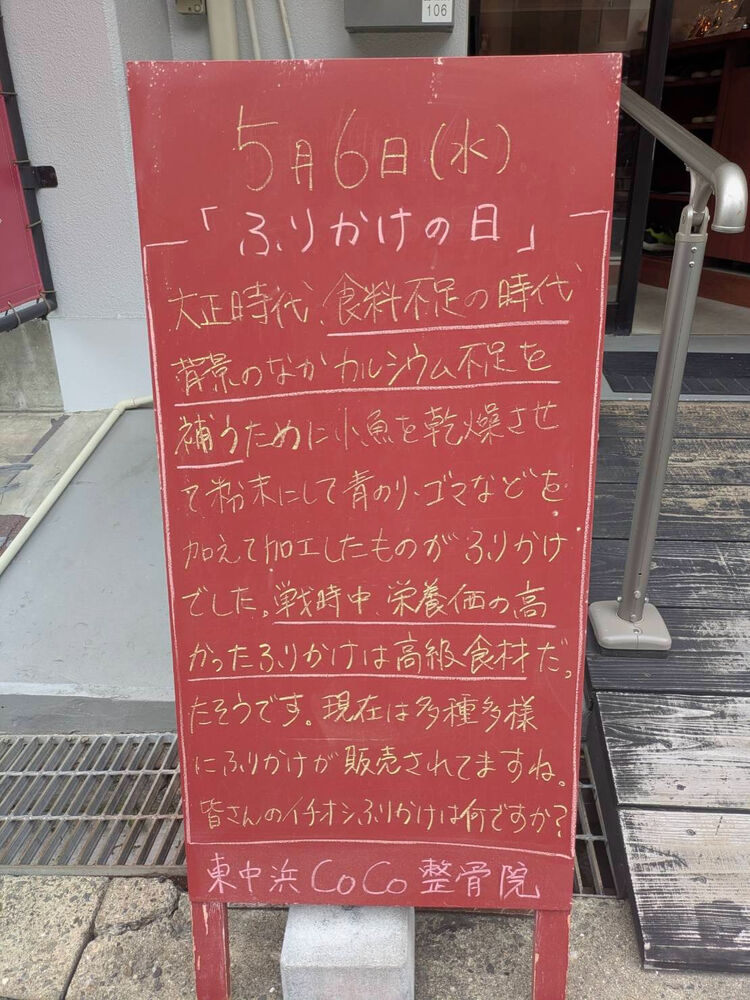 106
5月6日(水)
「ふりかけの日」
大正時代、食料不足の時代
背景のなかカルシウム不足を
補うために小魚を乾燥させ
て粉末にして青のり・ゴマなどを
加えて加工したものがふりかけ
でした。戦時中、栄養価の高
かったふりかけは高級食材だっ
たそうです。現在は多種多様
にふりかけが販売されてますね。
皆さんのイチオシふりかけは何ですか?
東中浜CoCo整骨院